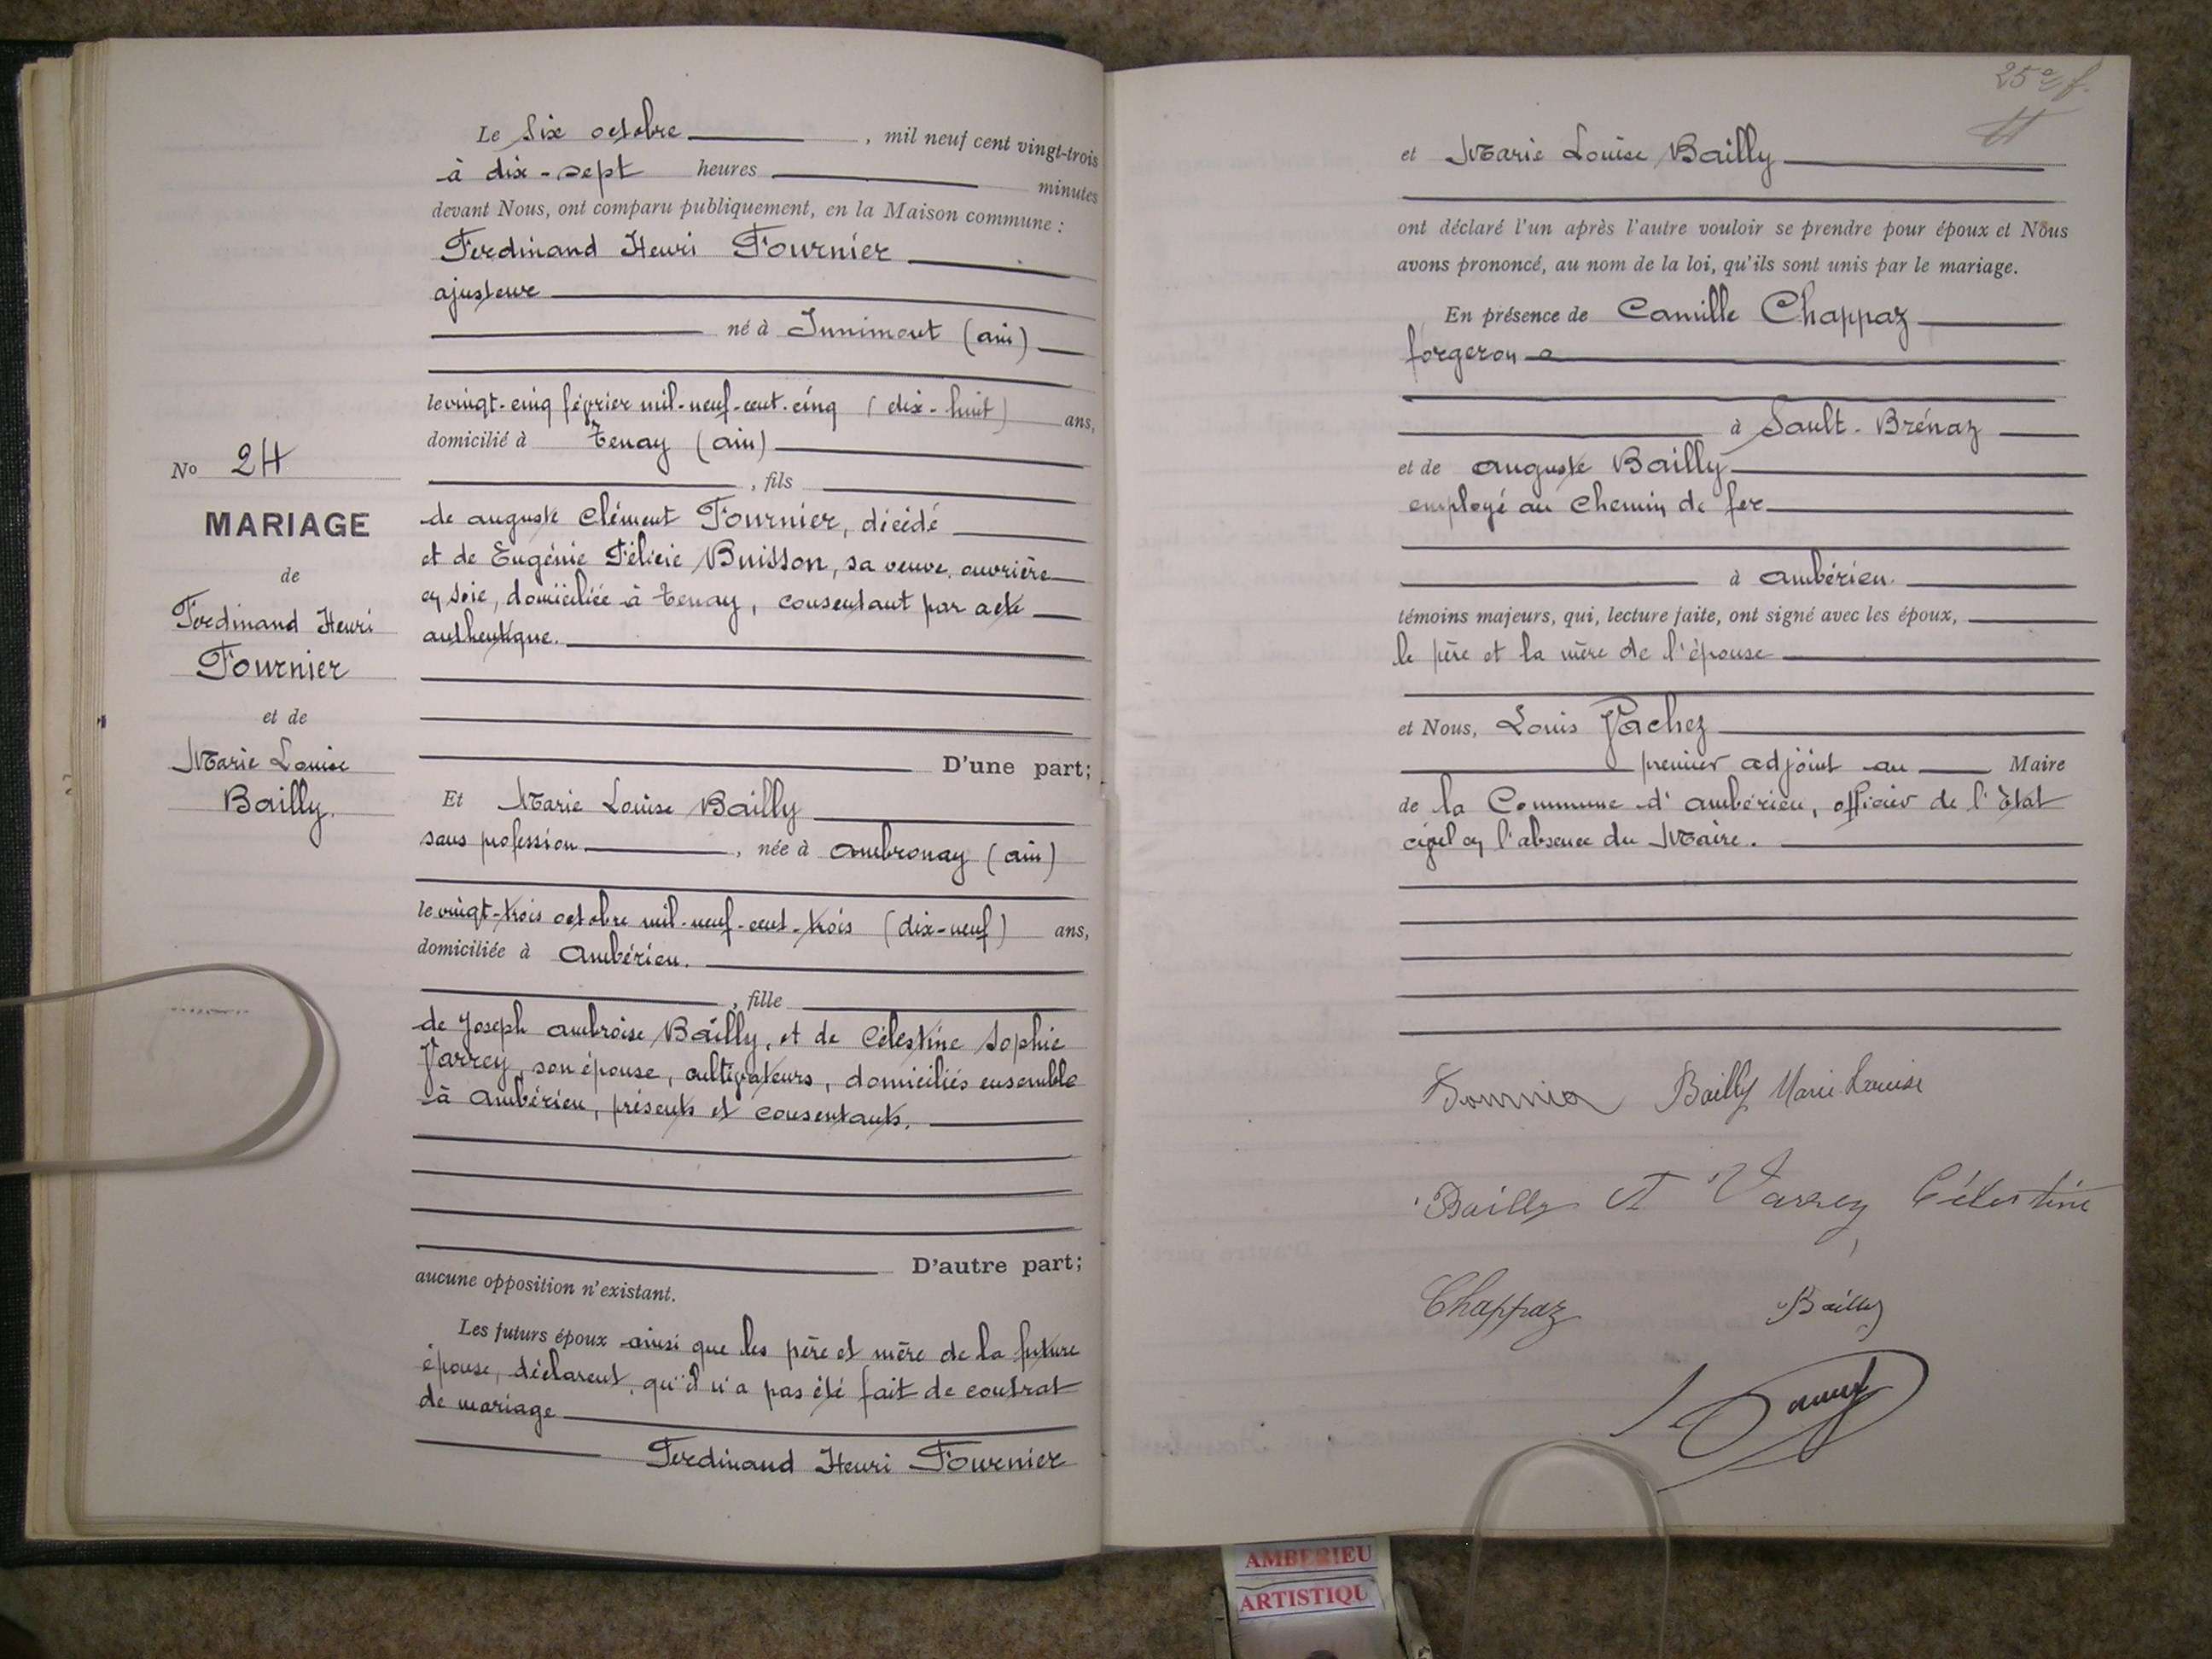 Le Six octobre, mil neuf cent vingt-trois
à dix-sept heures minutes
devant Nous, ont comparu publiquement, en la Maison commune :
Ferdinand Henri Fournier
ajusteur
né à Innimont (ain)
le vingt-cinq février mil-neuf-cent-cinq (dix-huit) ans,
domicilié à Tenay (ain)
, fils
de auguste Clément Fournier, décédé
et de Eugénie Félicie Buisson, sa veuve, ouvrière
en soie, domiciliée à Tenay, consentant par acte
authentique.
D'une part;
Et Marie Louise Bailly
sans profession, née à ambronay (ain)
le vingt-trois octobre mil-neuf-cent-trois (dix-neuf) ans,
domiciliée à Ambérieu.
, fille
de Joseph ambroise Bailly, et de Célestine Sophie
Varrey, son épouse, cultivateurs, domiciliés ensemble
à Ambérieu, présents et consentants.
D'autre part;
aucune opposition n'existant.
Les futurs époux ainsi que les père et mère de la future
épouse, déclarent, qu'il n'a pas été fait de contrat
de mariage
Ferdinand Henri Fournier
No 24
MARIAGE
de
Ferdinand Henri
Fournier
et de
Marie Louise
Bailly.
25e f.
et Marie Louise Bailly
ont déclaré l'un après l'autre vouloir se prendre pour époux et Nous
avons prononcé, au nom de la loi, qu'ils sont unis par le mariage.
En présence de Camille Chappaz
forgeron
à Sault-Brénaz
et de auguste Bailly
employé au Chemin de fer
à ambérieu.
témoins majeurs, qui, lecture faite, ont signé avec les époux,
le père et la mère de l'épouse
et Nous, Louis Vachez
premier adjoint au Maire
de la Commune d'ambérieu, officier de l'Etat
civil en l'absence du Maire.
Bailly Marie Louise
Bailly A Varrey Célestine
Chappaz Bailly
AMBERIEU
ARTISTIQU